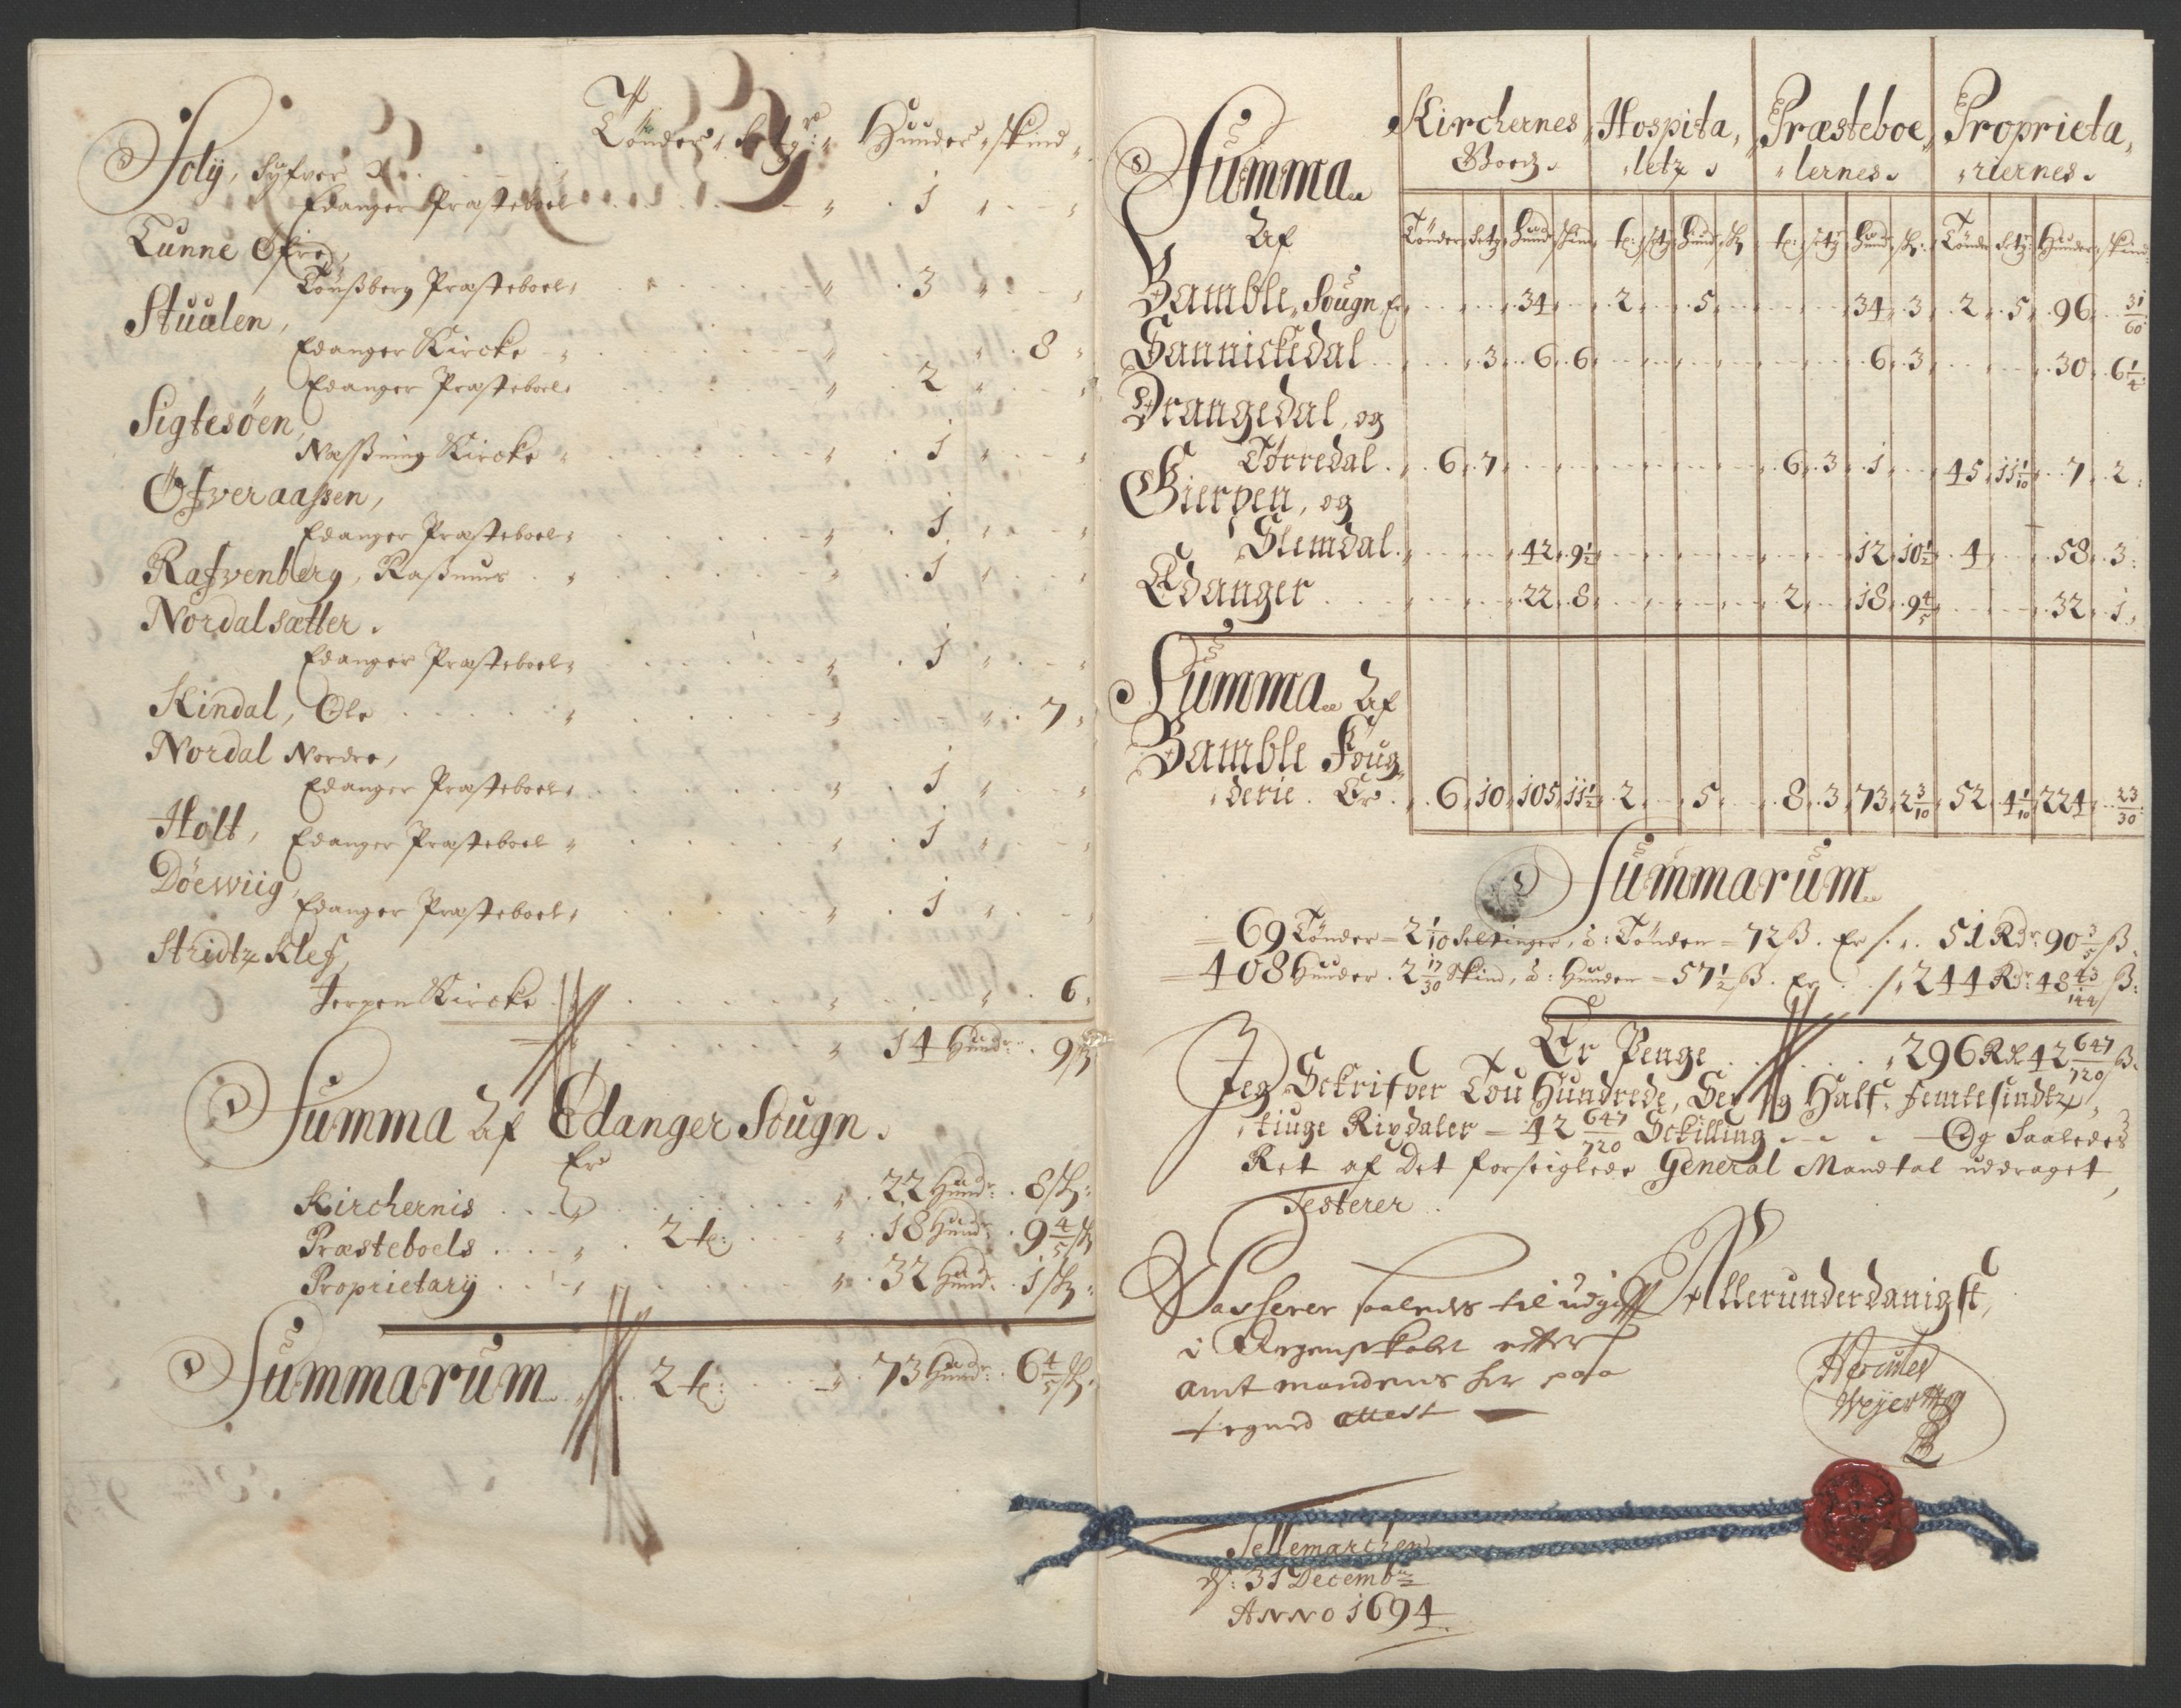 Tönder, Setg:r Hunder, skind,
Foly, Syfver
Edanger Præsteboel 1
Tunne Ofre,
Tönßberg Præsteboel, 3
Stuulen,
Edanger Kircke 8
Edanger Præsteboel, 2
Sigtesöen,
Næßning Kircke 1
Ofveraassen,
Edanger Præsteboel, 1
Rafvenberg, Raßmus 1
Nordalsætter.
Edanger Præsteboel, 1
Kindal, Ole 7
Nordal Nordre,
Edanger Præsteboel, 1
Holt, Edanger Præsteboel 1
Döewiig, Edanger Præsteboel, 1
Stridtz Klef,
Jerpen Kircke 6
14 Hund: 9 sk
Summa Af Edanger Sougn.
Er
Kirchernis 22 Hund: 8 sk:
Præsteboels 2 t: 18 Hund: 9 4/5 sk
Proprietarij 32 Hund: 1 sk:
Summarum 2 t: 73 Hund: 6 4/5 sk:
Summa Af
Kirchernes Goedz. Hospitaletz. Præsteboelernes. Proprietariernes.
Tönder, Setg, Hund, skin, t:, setg, Hund, sk t:, setg, Hund, sk: Tönde, Setg: Hunder, skind:
Bamble Sougn Er 34 2 5 34 3 2 5 96 31/60
Sannickedal 3 6 6 6 3 30 6 1/4
Drangedal, og
Törredal 6 7 6 3 1 45 11 1/10 7 2
Gierpen, og
Slemdal 42 9 1/2 12 10 1/2 4 58 3
Edanger 22 8 2 18 9 4/5 32 1
Summa Af
Bamble Foug
derie. Er 6 10 105 11 1/2 2 5 8 3 73 2 3/10 52 4 1/10 224 23/30
Summarum
69 Tönder 2 1/10 Setinger, à: Tönden 72 ß. Er 51 Rdr 90 3/5 ß.
408 Hunder. 2 17/30 Skind, à: Hunden 57 1/2 ß. Er 244 Rdr: 48 43/144 ß:
Er Penge 296 Rdr 42 647/720 ß.
Jeg Sckrifver Tou Hundrede, Sex og Half: femtesindtz,
tiuge Rixdaler 42 647/720 Sckilling Og Saaledes
Ret af Det forseiglede General Mandtal uddraget,
Testerer.
Passerer saaledes til udgift Allerunderdanigst,
i Regenskabet efter
amtmandens her paa
tegned attest
Hercules
Weyer
Tellemarchen
d: 31 Decemb
ANNO 1694